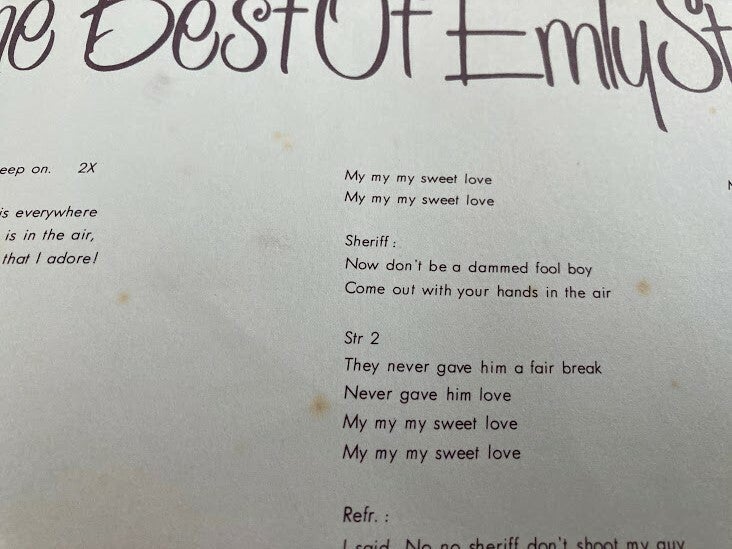 Best Of Emly
eep on. 2X
is everywhere
is in the air,
that I adore!
My my my sweet love
My my my sweet love
Sheriff:
Now don't be a dammed fool boy
Come out with your hands in the air
Str 2
They never gave him a fair break
Never gave him love
My my my sweet love
My my my sweet love
Refr. :
I said, No no sheriff don't shoot my guy